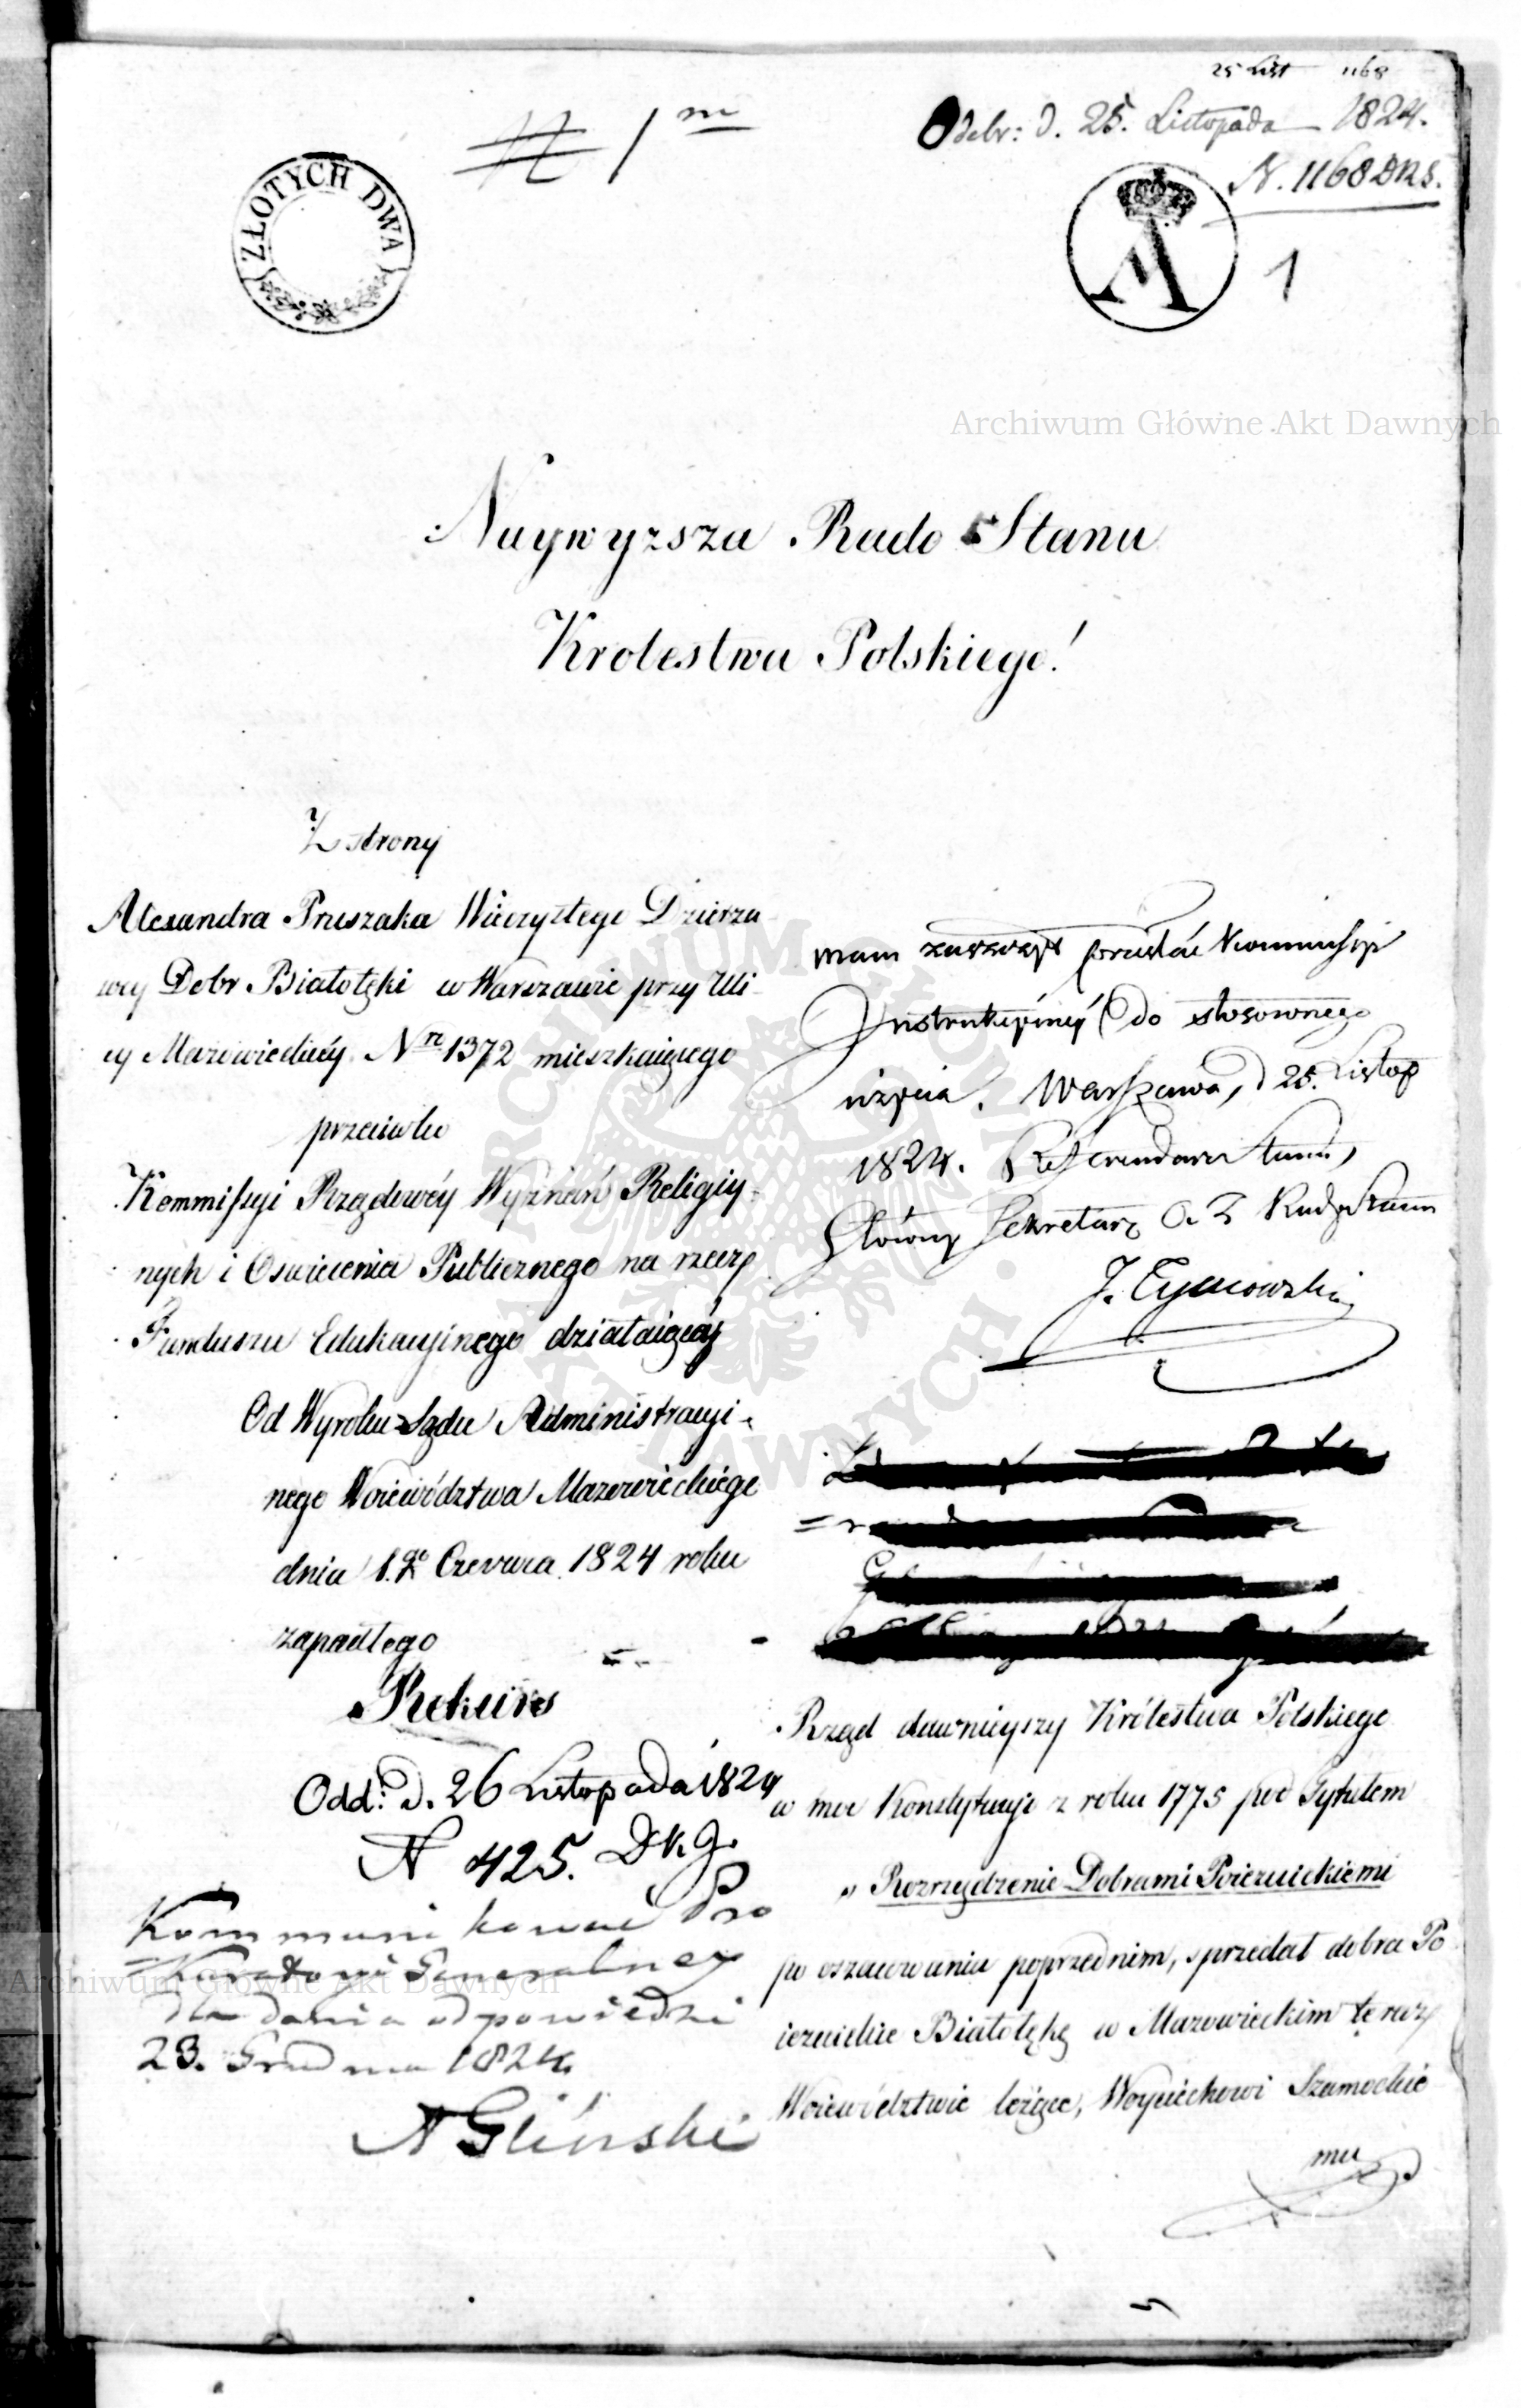 25 List 1168
Odebr: d. 25. Listopada 1824.
N. 1168 DRS.
1
ZŁOTYCH DWA
A
1
Archiwum Główne Akt Dawnych
Naywyzsza Rado Stanu
Krolestwa Polskiego!
Z strony
Alexandra Pruszaka Wieczystego Dzierza
wcy Dobr Białołęki w Warszawie przy Uli
cy Mazowieckiéy Nrr 1372 mieszkaiącego
przeciwko
Kommissyi Rządowéy Wyznań Religiy-
nych i Oswiecenia Publicznego na rzecz
Funduszu Edukacyinego działaiącéy
Od Wyroku Sądu Administracyi-
nego Woiewództwa Mazowieckiego
dnia 1.go Czerwca 1824 roku
zapadłego
Rekurs
Odd: d. 26 Listopada 1824
N 425. DKJ.
Kommunikować Pro
kuratoryi Generalney
dla dania odpowiedzi
23. Grudnia 1824
A Gliński
mam zaszczyt przesłać Kommissyi
Instrukcyinéy do stosownego
użycia. Warszawa, d 25. Listop
1824. Referendarz Stanu,
Główny Sekretarz Rady Stanu
J. Tymowski
Rząd dawnieyszy Królestwa Polskiego
w moc Konstytucyi z roku 1775 pod Tytułem
„ Rozrządzenie Dobrami Poiezuickiemi
po oszacowaniu poprzednim, sprzedał dobra Po
iezuickie Białołękę w Mazowieckim teraz
Woiewództwie leżące, Woyciechowi Szamockie
mu
ARCHIWUM GŁÓWNE AKT DAWNYCH
Archiwum Główne Akt Dawnych